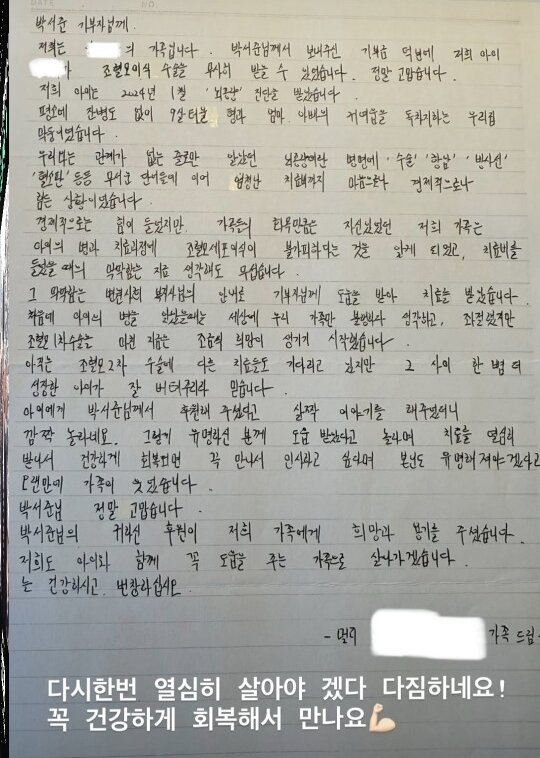 DATE NO.
박서준 기부자님께.
저희는 의 가족입니다. 박서준님께서 보내주신 기부금 덕분에 저희 아이
가 조혈모이식 수술을 무사히 받을 수 있었습니다. 정말 고맙습니다.
저희 아이는 2024년 1월 '뇌종양' 진단을 받았습니다.
평소에 잔병도 없이 9살 터울 형과 엄마 아빠의 귀여움을 독차지하는 우리집
막둥이였습니다.
우리와는 관계가 없는 줄로만 알았던 뇌종양이란 병명에 '수술' '항암' '방사선'
'혈소판' 등등 무서운 단어들에 이어 엄청난 치료비까지 마음으로나 경제적으로나
힘든 상황이었습니다.
경제적으로는 힘이 들었지만, 가족들의 화목만큼은 자신있었던 저희 가족은
아이의 병과 치료과정에 조혈모세포이식이 불가피하다는 것을 알게 되었고, 치료비를
들었을 때의 막막함은 지금 생각해도 무섭습니다.
그 막막함는 병원사회 복지사님의 안내로 기부자님께 도움을 받아 치료를 받았습니다.
처음에 아이의 병을 알았을때는 세상에 우리 가족만 불행하다 생각하고, 좌절했지만
조혈모 1차수술을 마친 지금은 조금씩 희망이 생기기 시작했습니다.
아직은 조혈모 2차 수술에 다른 치료들도 기다리고 있지만 그 사이 한 뼘 더
성장한 아이가 잘 버텨주리라 믿습니다.
아이에게 박서준님께서 후원해 주셨다고 살짝 이야기를 해주었더니
깜짝 놀라네요. 그렇게 유명하신 분께 도움 받았다고 놀라며 치료를 열심히
받아서 건강하게 회복되면 꼭 만나서 인사하고 싶다며 본인도 유명해져야겠다고
오랜만에 가족이 웃었습니다.
박서준님 정말 고맙습니다.
박서준님의 귀하신 후원이 저희 가족에게 희망과 용기를 주셨습니다.
저희도 아이와 함께 꼭 도움을 주는 가족으로 살아가겠습니다.
늘 건강하시고 번창하십시오.
- 멀리 가족 드림 -
다시한번 열심히 살아야 겠다 다짐하네요!
꼭 건강하게 회복해서 만나요💪🏻